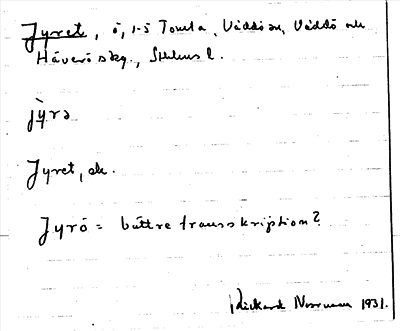 Jyret, ö, 1-5 Tomta, Väddö sn, Väddö och
Häverö skg., Sthlms l.
jỳrə
Jyret, ek.
Jyrö = bättre transskription?
Rickard Norrman 1931.